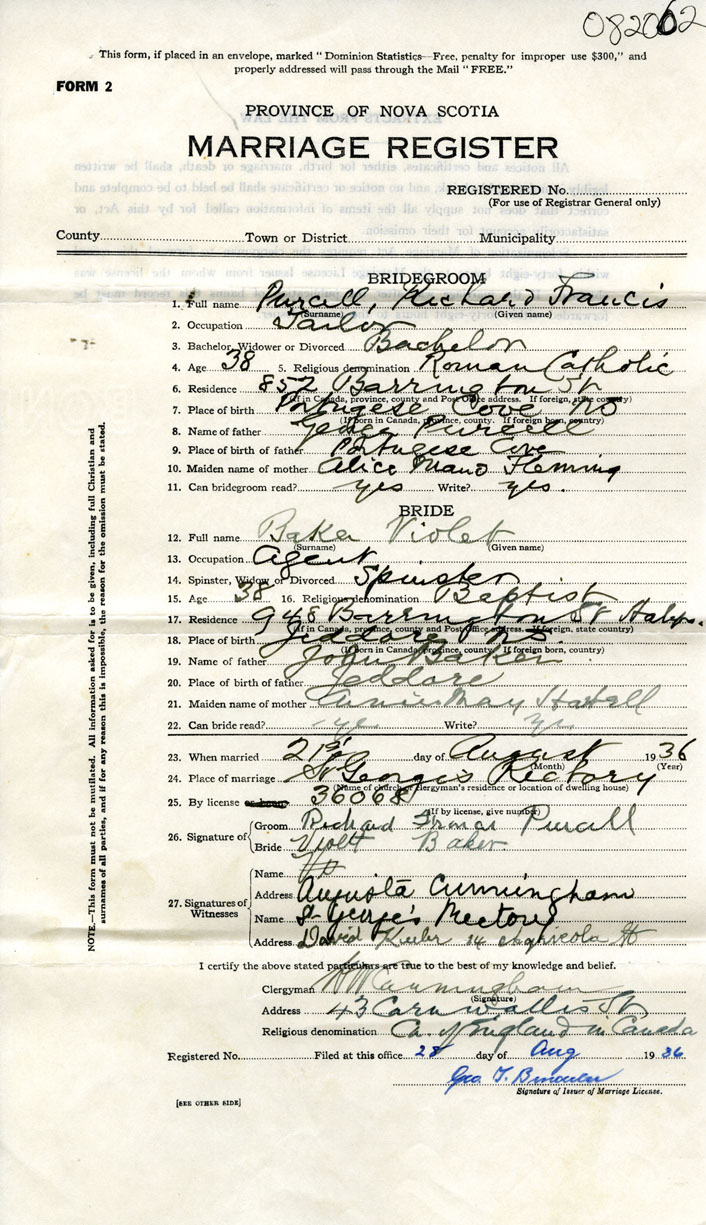 082062
This form, if placed in an envelope, marked "Dominion Statistics—Free, penalty for improper use $300," and
properly addressed will pass through the Mail "FREE."
FORM 2
PROVINCE OF NOVA SCOTIA
MARRIAGE REGISTER
REGISTERED No.
(For use of Registrar General only)
County Town or District Municipality
BRIDEGROOM
1. Full name Purcell, Richard Francis
(Surname) (Given name)
2. Occupation Tailor
3. Bachelor, Widower or Divorced Bachelor
4. Age 38 5. Religious denomination Roman Catholic
6. Residence 852 Barrington St
(If in Canada, province, county and Post Office address. If foreign, state country)
7. Place of birth Portugese Cove NS
(If born in Canada, province, county. If foreign born, country)
8. Name of father George Purcell
9. Place of birth of father Portugese Cove
10. Maiden name of mother Alice Maud Fleming
11. Can bridegroom read? yes Write? yes.
BRIDE
12. Full name Baker Violet
(Surname) (Given name)
13. Occupation Agent
14. Spinster, Widow or Divorced Spinster
15. Age 38 16. Religious denomination Baptist
17. Residence 948 Barrington St Halifx.
(If in Canada, province, county and Post Office address. If foreign, state country)
18. Place of birth Jeddore NS.
(If born in Canada, province, county. If foreign born, country)
19. Name of father John Baker
20. Place of birth of father Jeddore
21. Maiden name of mother Annie May
22. Can bride read? yes Write? yes
23. When married 21st day of August 1936
(Month) (Year)
24. Place of marriage St George's Rectory
(Name of church or clergyman's residence or location of dwelling house)
25. By license or banns 36068
(If by license, give number)
26. Signature of Groom Richard Francis Purcell
Bride Violet Baker
27. Signatures of Witnesses
Name
Address Augusta Cunningham
Name St George's Rectory
Address David 14 Agricola St
I certify the above stated particulars are true to the best of my knowledge and belief.
Clergyman Cunningham
(Signature)
Address 43 Cornwallis St
Religious denomination Ch. of England in Canada
Registered No. Filed at this office 28 day of Aug 1936
Geo. T.
Signature of Issuer of Marriage License.
[SEE OTHER SIDE]
NOTE.—This form must not be mutilated. All information asked for is to be given, including full Christian and
surnames of all parties, and if for any reason this is impossible, the reason for the omission must be stated.